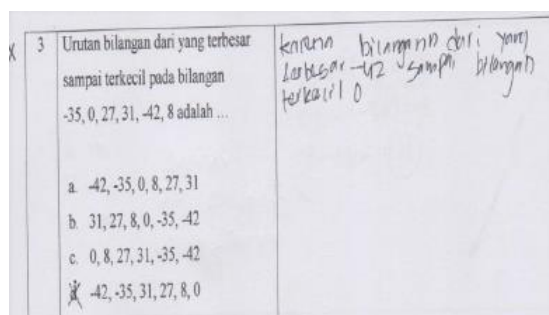 X
3
Urutan bilangan dari yang terbesar
sampai terkecil pada bilangan
-35, 0, 27, 31, -42, 8 adalah ...
a. -42, -35, 0, 8, 27, 31
b. 31, 27, 8, 0, -35, -42
c. 0, 8, 27, 31, -35, -42
d. -42, -35, 31, 27, 8, 0
karena bilangann dari yang
terbesar -42 sampai bilangan
terkecil 0